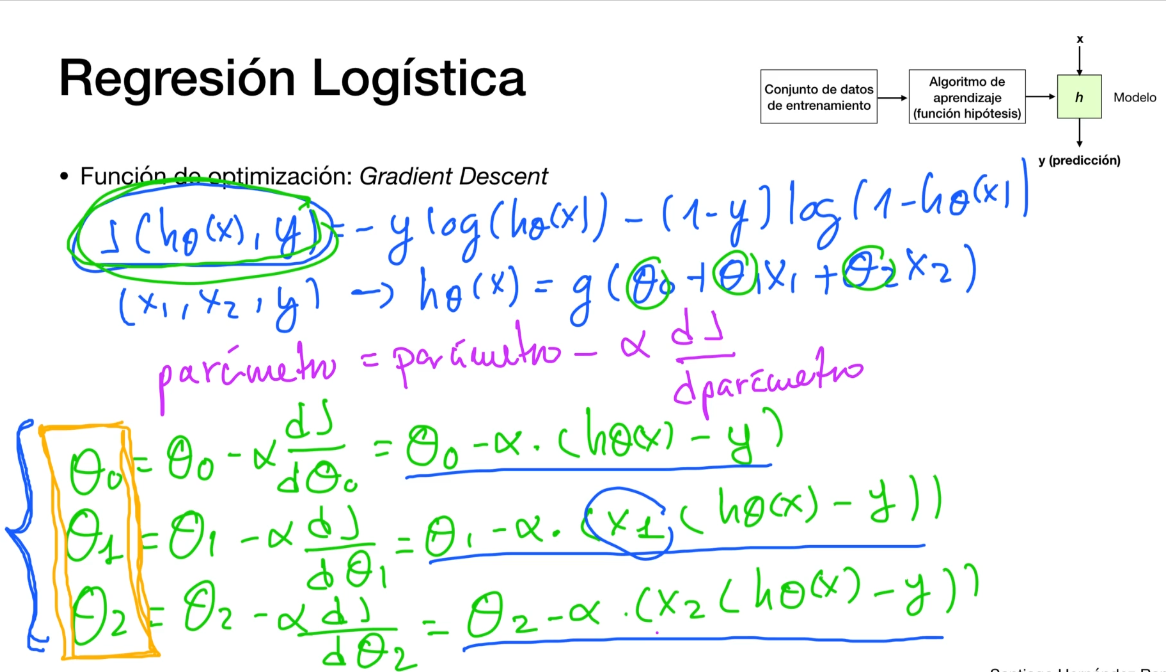 Regresión Logística
Conjunto de datos
de entrenamiento
Algoritmo de
aprendizaje
(función hipótesis)
x
h
Modelo
y (predicción)
• Función de optimización: Gradient Descent
J(hθ(x), y) = - y log(hθ(x)) - (1-y) log(1-hθ(x))
(x₁, x₂, y) → hθ(x) = g(θ₀ + θ₁x₁ + θ₂x₂)
parámetro = parámetro - α dJ/dparámetro
θ₀ = θ₀ - α dJ/dθ₀ = θ₀ - α · (hθ(x) - y)
θ₁ = θ₁ - α dJ/dθ₁ = θ₁ - α · (x₁(hθ(x) - y))
θ₂ = θ₂ - α dJ/dθ₂ = θ₂ - α · (x₂(hθ(x) - y))